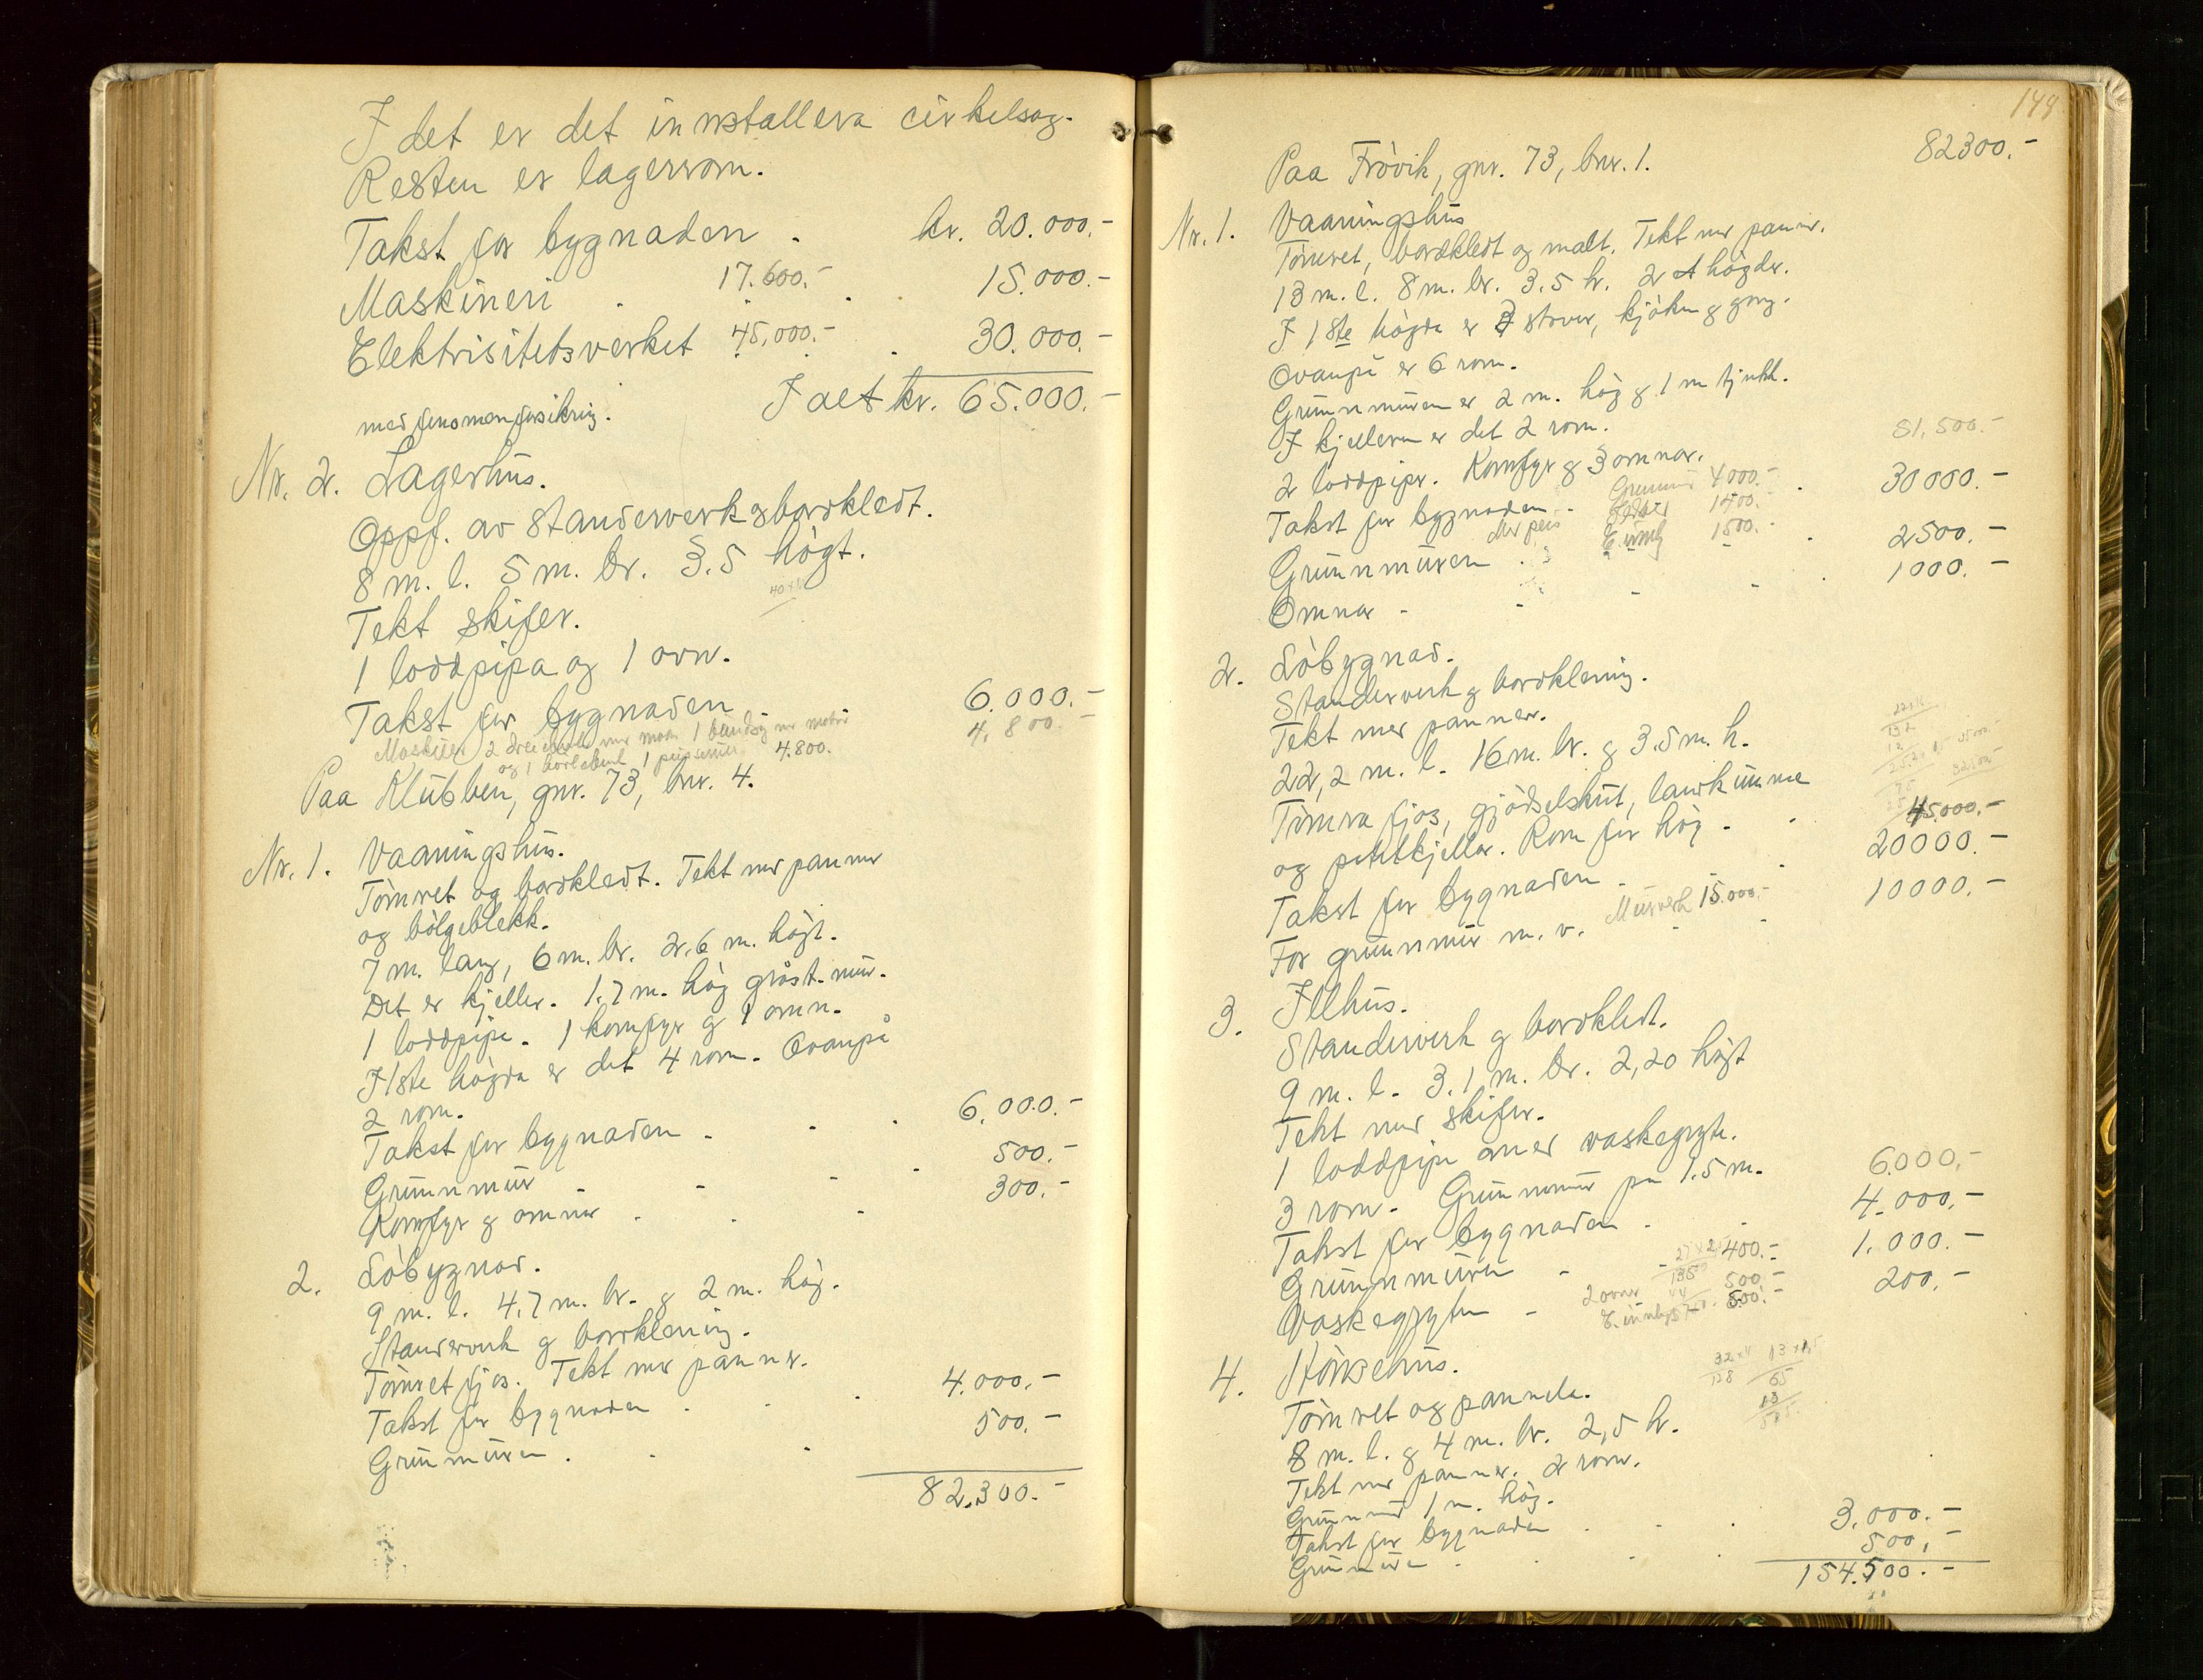 I det er det innstallera cirkelsag.
Resten er lagerrom.
Takst for bygnaden . kr. 20.000.-
Maskineri . 17.600.- . . 15.000.-
Elektrisitetsverket 45,000.- . 30.000.-
I alt kr. 65.000.-
Nr. 2. Lagerhus.
Oppf. av standerverk og bordkledt.
8 m. l. 5 m. br. 3.5 høgt.
Tekt skifer.
1 loddpipa og 1 ovn.
Takst for bygnaden . 6.000.-
4.800.-
og 1 1 4.800.
Paa Klubben, gnr. 73, bnr. 4.
Nr. 1. Vaaningshus.
Tømret og bordkledt. Tekt med panner
og bølgeblekk.
7 m. lang, 6 m. br. 2.6 m. høgt.
Det er kjeller. 1.7 m. høg gråst. mur.
1 loddpipe. 1 komfyr og 1 omn.
I 1ste høgda er det 4 rom. Ovanpå
2 rom.
Takst for bygnaden . . . 6.000.-
Grunnmur - - - . 500.-
Komfyr og omner . . - 300.-
2. Løbygnad.
9 m. l. 4.7 m. br. og 2 m. høg.
Standerverk og bordklening.
Tømret fjøs. Tekt med panner.
Takst for bygnaden . . . 4.000.-
Grunnmuren . . . 500.-
82.300.-
149
82300.-
Paa Frøvik, gnr. 73, bnr. 1.
Nr. 1. Vaaningshus
Tømret, bordkledt og malt. Tekt med panner.
13 m. l. 8 m. br. 3.5 h. 2 høgder.
I 1ste høgda er stover, kjøken og gang.
Ovanpå er 6 rom.
Grunnmuren er 2 m. høg og 1 m tjukk.
I kjelleren er det 2 rom.
81,500.-
2 loddpiper. Komfyr og 3 omnar.
Grunnmur 4000.-
Takst for bygnaden . 1400.- . 30000.-
1500.-
Grunnmuren . . 2500.-
Omnar - - - - . 1000.-
2. Løbygnad.
Standerverk og bordklening.
Tekt med panner.
22,2 m. l. 16 m. br. og 3.5 m. h.
Tømra fjøs, gjødselshus, landkumme
og potetkjellar. Rom for høy . . 45.000.-
Takst for bygnaden . - . 20000.-
For grunnmur m. v. Murverk 15.000.- 10000.-
3. Ildhus.
Standerverk og bordkledt.
9 m. l. 3.1 m. br. 2,20 høgt
Tekt med skifer.
1 loddpipe med vaskegryte.
3 rom. Grunnmur på 1.5 m. 6.000.-
Takst for bygnaden . - 4.000,-
Grunnmuren - - 400.- 1.000.-
Vaskegryten - 2 ovner 500.- 200,-
500.-
4. Hønsehus.
Tømret og panela.
8 m. l. og 4 m. br. 2,5 h.
Tekt med panner. 2 rom.
Grunnmur 1 m. høg.
Takst for bygnaden . - . 3.000.-
Grunnmuren - . . 500,-
154.500.-